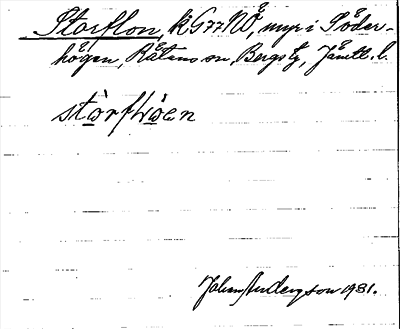 Storflon, kG77NÖ, myr i Söder-
högen, Råtens sn, Bergs tg, Jämtl. l.
storfluen
Johan Anderzson 1931.